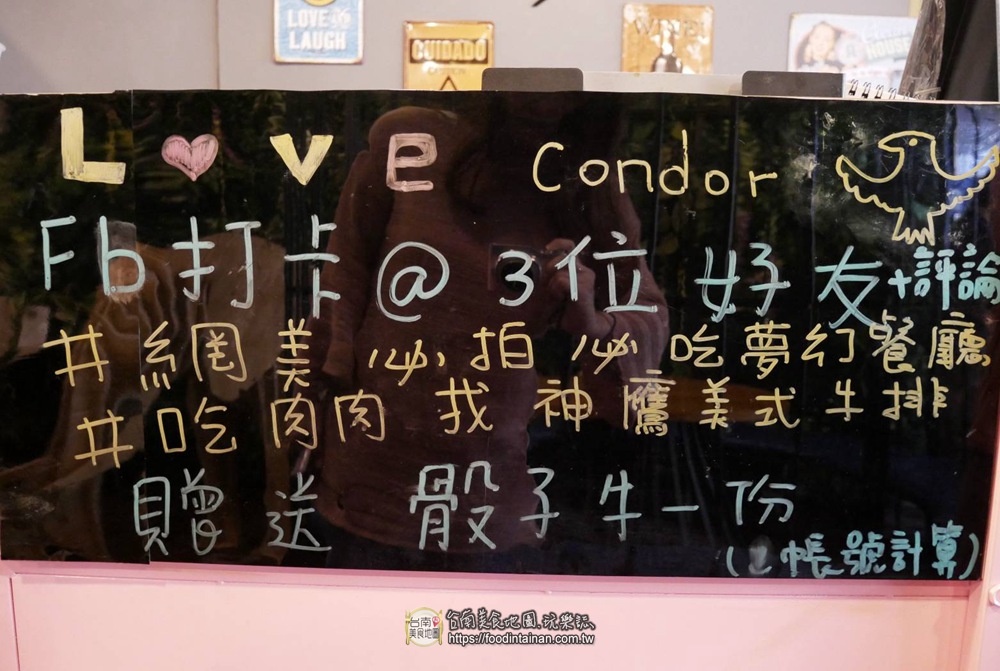 LOVE
LAUGH
CUIDADO
WINE
HOUSE
L♥ve Condor
Fb打卡@3位好友+評論
#網美必拍必吃夢幻餐廳
#吃肉肉找神鷹美式牛排
贈送 骰子牛一份
帳號計算)
台南美食地圖
台南美食地圖.玩樂誌.
https://foodintainan.com.tw